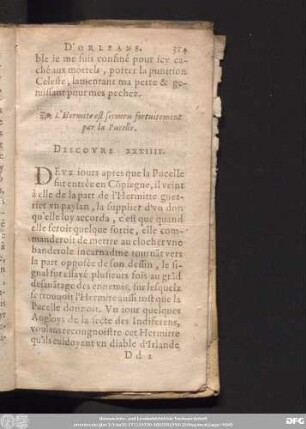 D'ORLEANS. 314
ble ie me suis confiné pour icy ca-
ché aux mortels, porter la punition
Celeste, lamentant ma perte & ge-
missant pour mes pechez.
L'Hermite est secouru fortuitement
par la Pucelle.
DISCOVRS XXIIII.
DEVX iours apres que la Pucelle
fut entrée en Cõpiegne, il vient
à elle de la part de l'Hermitte guer-
rier vn paysan, la supplier d'vn don
qu'elle luy accorda, c'est que quand
elle feroit quelque sortie, elle com-
manderoit de mettre au clocher vne
banderole incarnadine tournãt vers
la part opposée de son dessin, le si-
gnal fut essayé plusieurs fois au grãd
desauãtage des ennemis, sur lesquels
se trouuoit l'Hermite aussi tost que la
Pucelle donnoit. Vn iour quelques
Angloys de la secte des Indiferens,
voulans recongnoistre cet Hermitte
qu'ils cuidoyent vn diable d'Irlande
D d 2